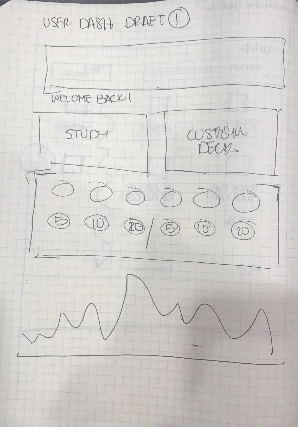 USER DASH DRAFT 1
WELCOME BACK!
STUDY
CUSTOM
DECK
5 10 20 / 5 10 20